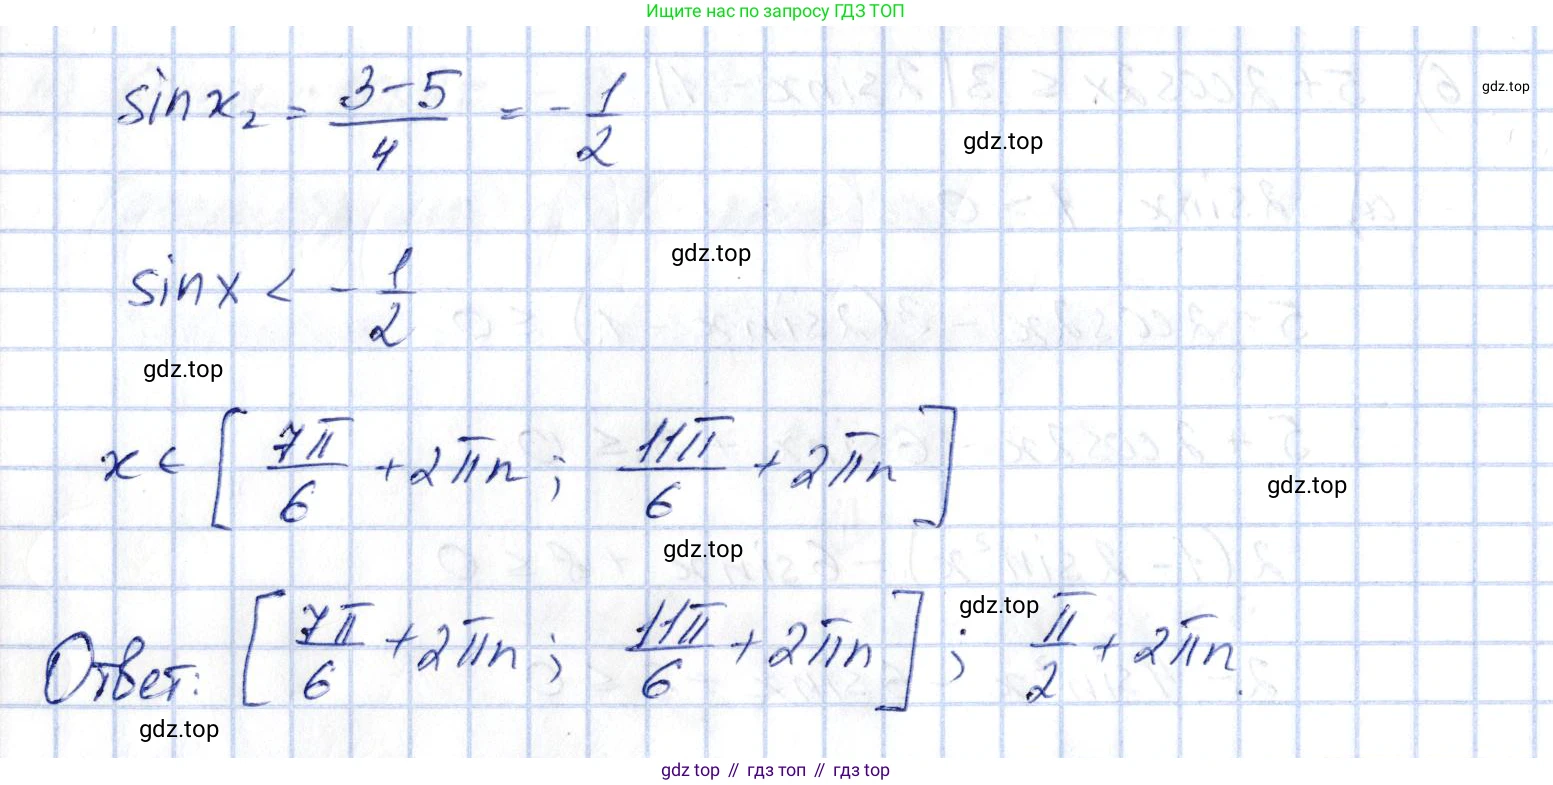 Ищите нас по запросу ГДЗ ТОП
gdz.top
sin x₂ = (3-5)/4 = - 1/2
gdz.top
gdz.top
sin x < - 1/2
gdz.top
x ∈ [7π/6 + 2πn; 11π/6 + 2πn]
gdz.top
gdz.top
gdz.top
Ответ: [7π/6 + 2πn; 11π/6 + 2πn]; π/2 + 2πn.
gdz.top
gdz top // гдз топ // гдз top